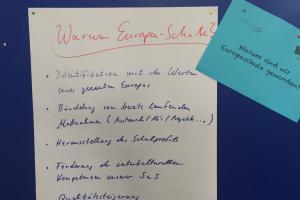 Warum Europa-Schule?
• Identifikation mit den Werten
eines geeinten Europas
• Bündelung von bereits laufenden
Maßnahmen (Austausch / AGs / Projekte ...)
• Herausstellung des Schulprofils
• Förderung der interkulturellen
Kompetenzen unserer SuS
Qualitätssteigerung
Warum sind wir
Europaschule geworden?